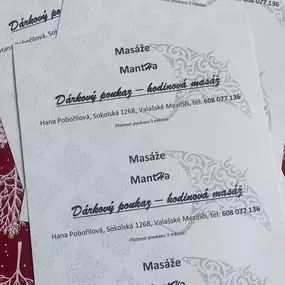 Dárkový pou
Hana Pobořilová, Sokols
Platnost poukazu 3 měsíce.
Masáže
MantHa
Dárkový poukaz – hodinová masáž
Hana Pobořilová, Sokolská 1268, Valašské Meziříčí, tel: 608 077 136
Platnost poukazu 3 měsíce.
Masáže
MantHa
Dárkový poukaz – hodinová masáž
Hana Pobořilová, Sokolská 1268, Valašské Meziříčí, tel: 608 077 136
Platnost poukazu 3 měsíce.
Masáže
MantHa